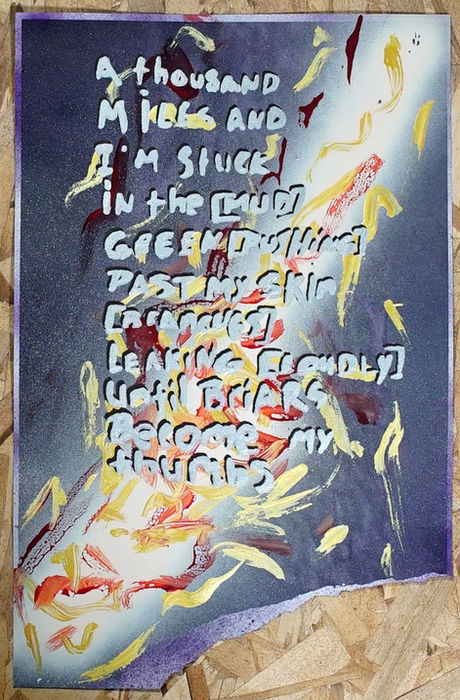 A thousAND
MiLES AND
I'M STUCK
in the [MUD]
GREEN [PUSHING]
PAST MY SKin
[BRANCHES]
LEAKING [LOUDLY]
until BRiARS
Become my
thumbs